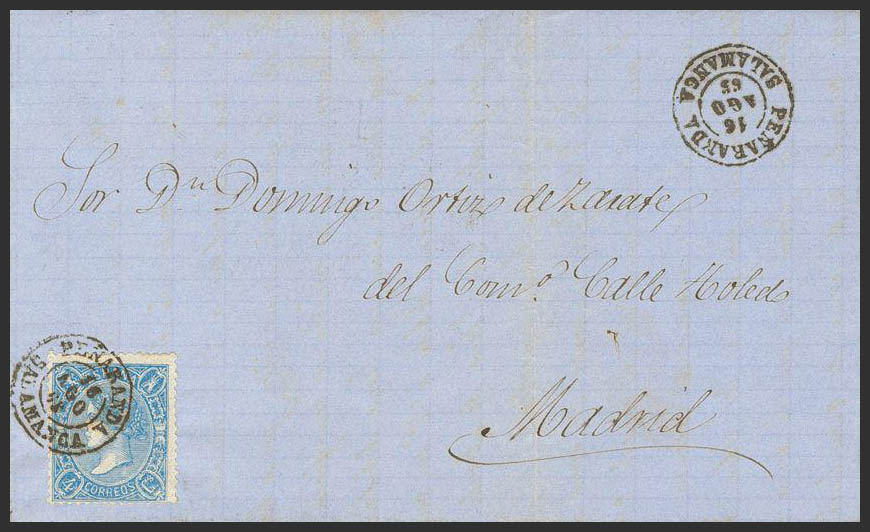 PEÑARANDA
16
AGO
65
SALAMANCA
Sor Dn Domingo Ortiz de Zarate
del Como. Calle Toledo
Madrid
PEÑARANDA
16
AGO
65
SALAMANCA
4 CORREOS